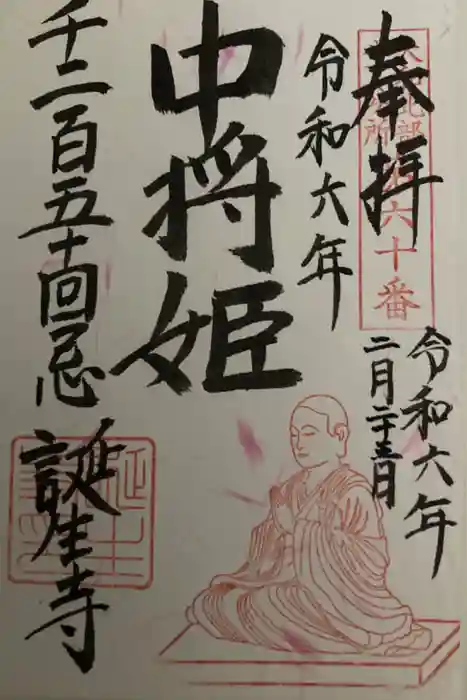 奉拝
第六十番
令和六年
二月二十三日
令和六年
中将姫
千二百五十回忌
誕生寺